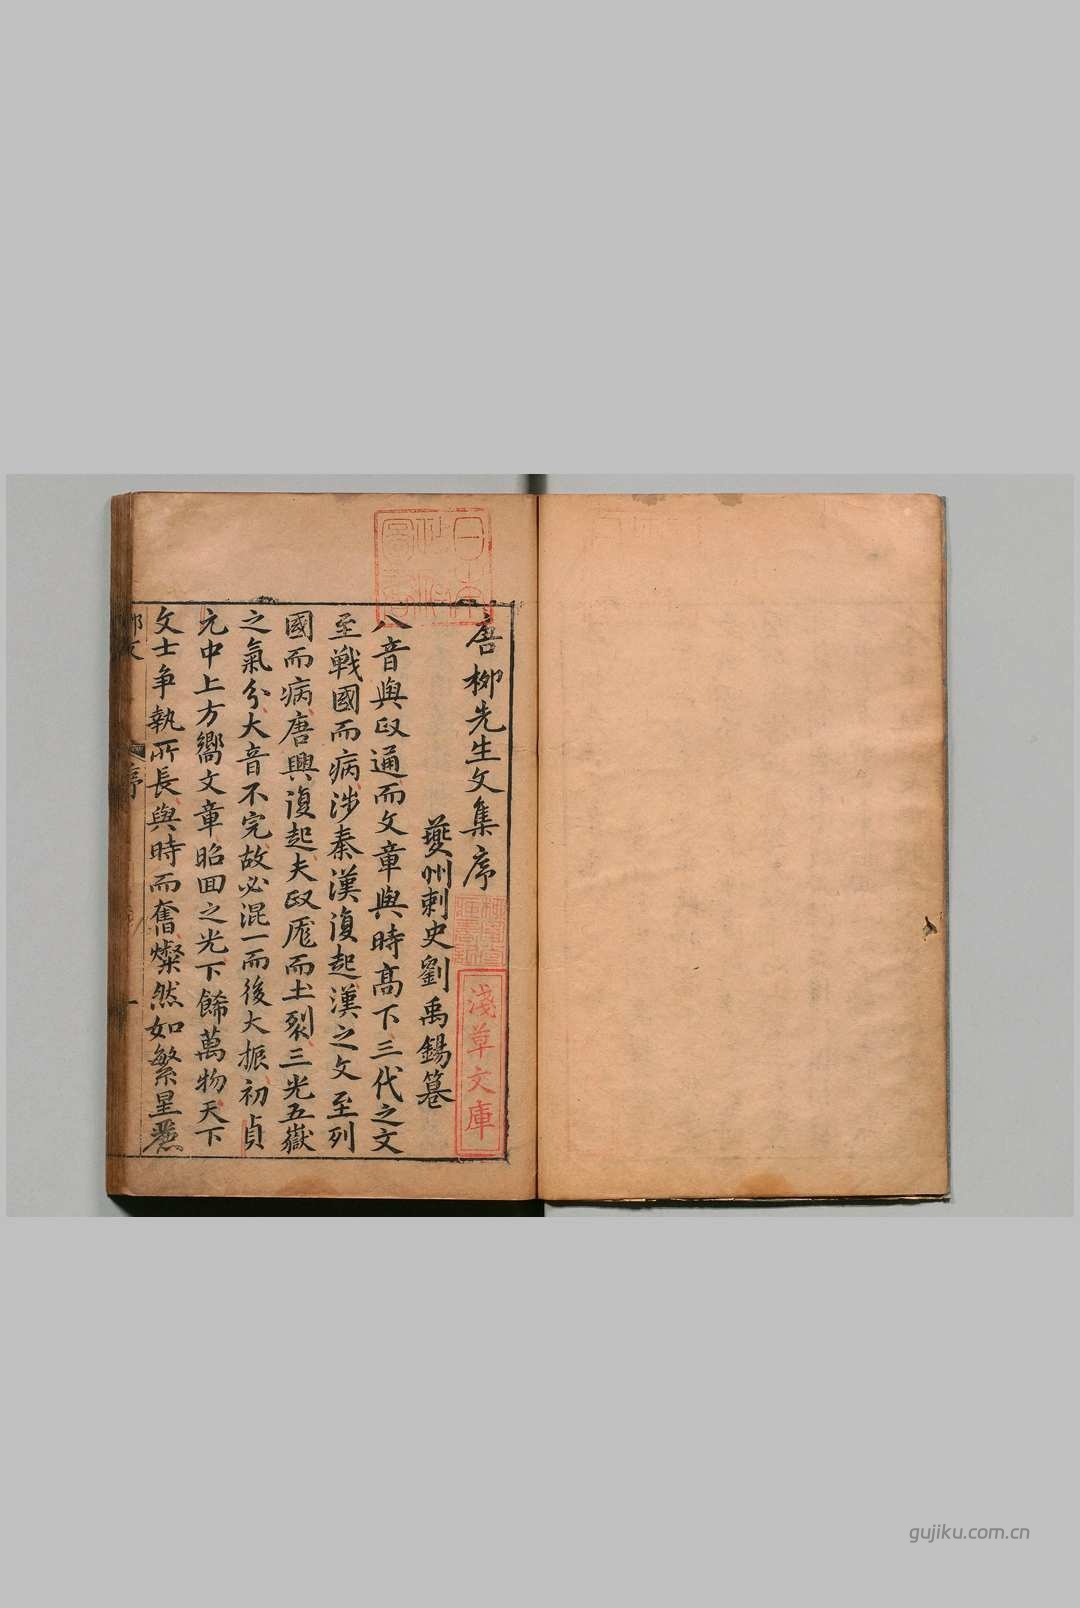 唐柳先生文集序
夔州刺史劉禹錫纂
八音與政通而文章與時高下三代之文
至戰國而病涉秦漢復起漢之文至列
國而病唐興復起夫政厖而土裂三光五嶽
之氣分大音不完故必混一而後大振初貞
元中上方嚮文章昭回之光下餙萬物天下
文士争執所長與時而奮燦然如繁星麗
序
一
日本
圖書
淺草文庫
gujiku.com.cn